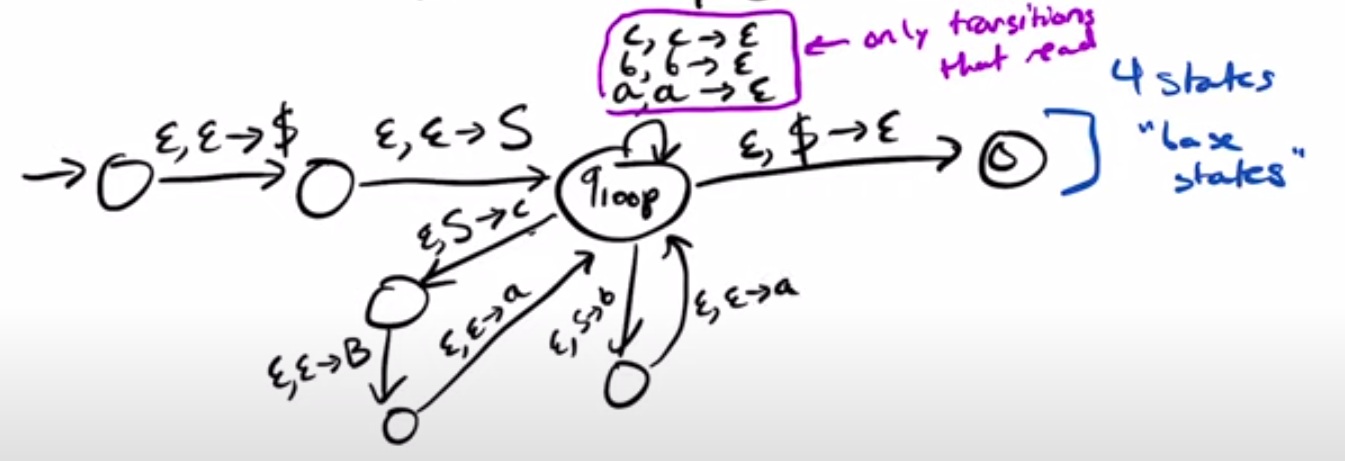 c, c → ε
b, b → ε
a, a → ε
← only transitions
that read
4 states
"base
states"
ε, ε → $
ε, ε → S
ε, $ → ε
qloop
ε, S → c
ε, ε → B
ε, ε → a
ε, S → b
ε, ε → a